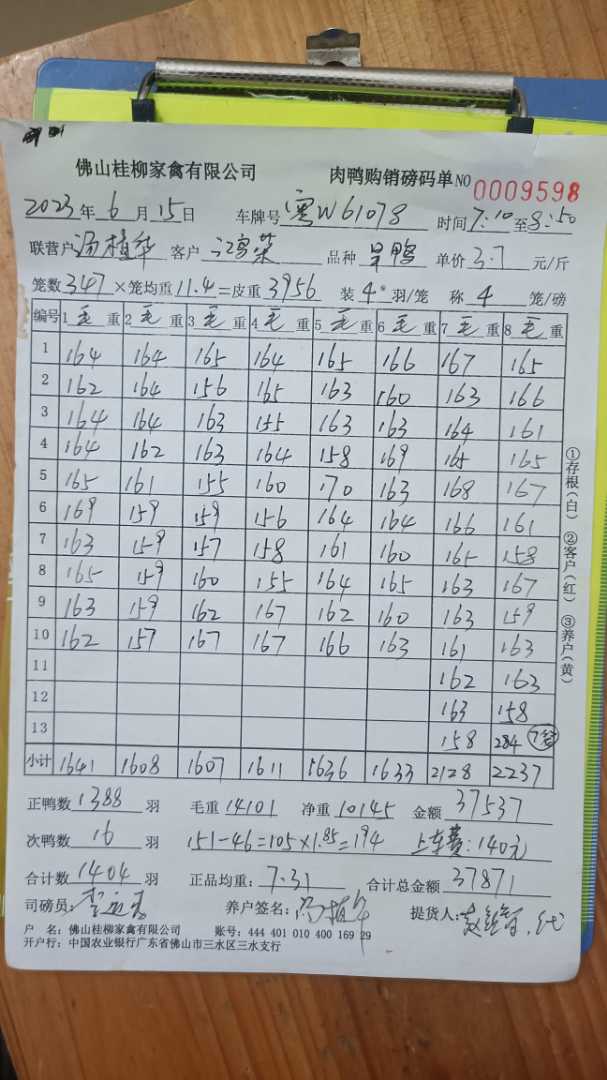 佛山桂柳家禽有限公司 肉鸭购销磅码单NO 0009598
2023年 6 月 15 日 车牌号 粤W61078 时间 7:10 至 8:50
联营户 汤植华 客户 品种 旱鸭 单价 3.7 元/斤
笼数 347 ×笼均重 11.4 =皮重 3956 装 4 羽/笼 称 4 笼/磅
编号 1 毛 重 2 毛 重 3 毛 重 4 毛 重 5 毛 重 6 毛 重 7 毛 重 8 毛 重
1 164 164 165 164 165 166 167 165
2 162 164 156 165 163 160 163 166
3 164 164 163 155 163 163 164 161
4 164 162 163 164 158 169 165 165
5 165 161 155 160 170 163 168 167
6 169 159 159 156 164 164 166 161
7 163 159 157 158 161 160 165 158
8 165 159 160 155 164 165 163 167
9 163 159 162 167 162 160 163 159
10 162 157 167 167 166 163 161 163
11 162 163
12 163 158
13 158 284 7笼
小计 1641 1608 1607 1611 1636 1633 2128 2237
正鸭数 1388 羽 毛重 14101 净重 10145 金额 37537
次鸭数 16 羽 151-46=105×1.85=194 上车费:140元
合计数 1404 羽 正品均重: 7.31 合计总金额 37871
司磅员: 养户签名: 汤植华 提货人: 代
户 名: 佛山桂柳家禽有限公司 账号: 444 401 010 400 169 29
开户行: 中国农业银行广东省佛山市三水区三水支行
①存根(白) ②客户(红) ③养户(黄)